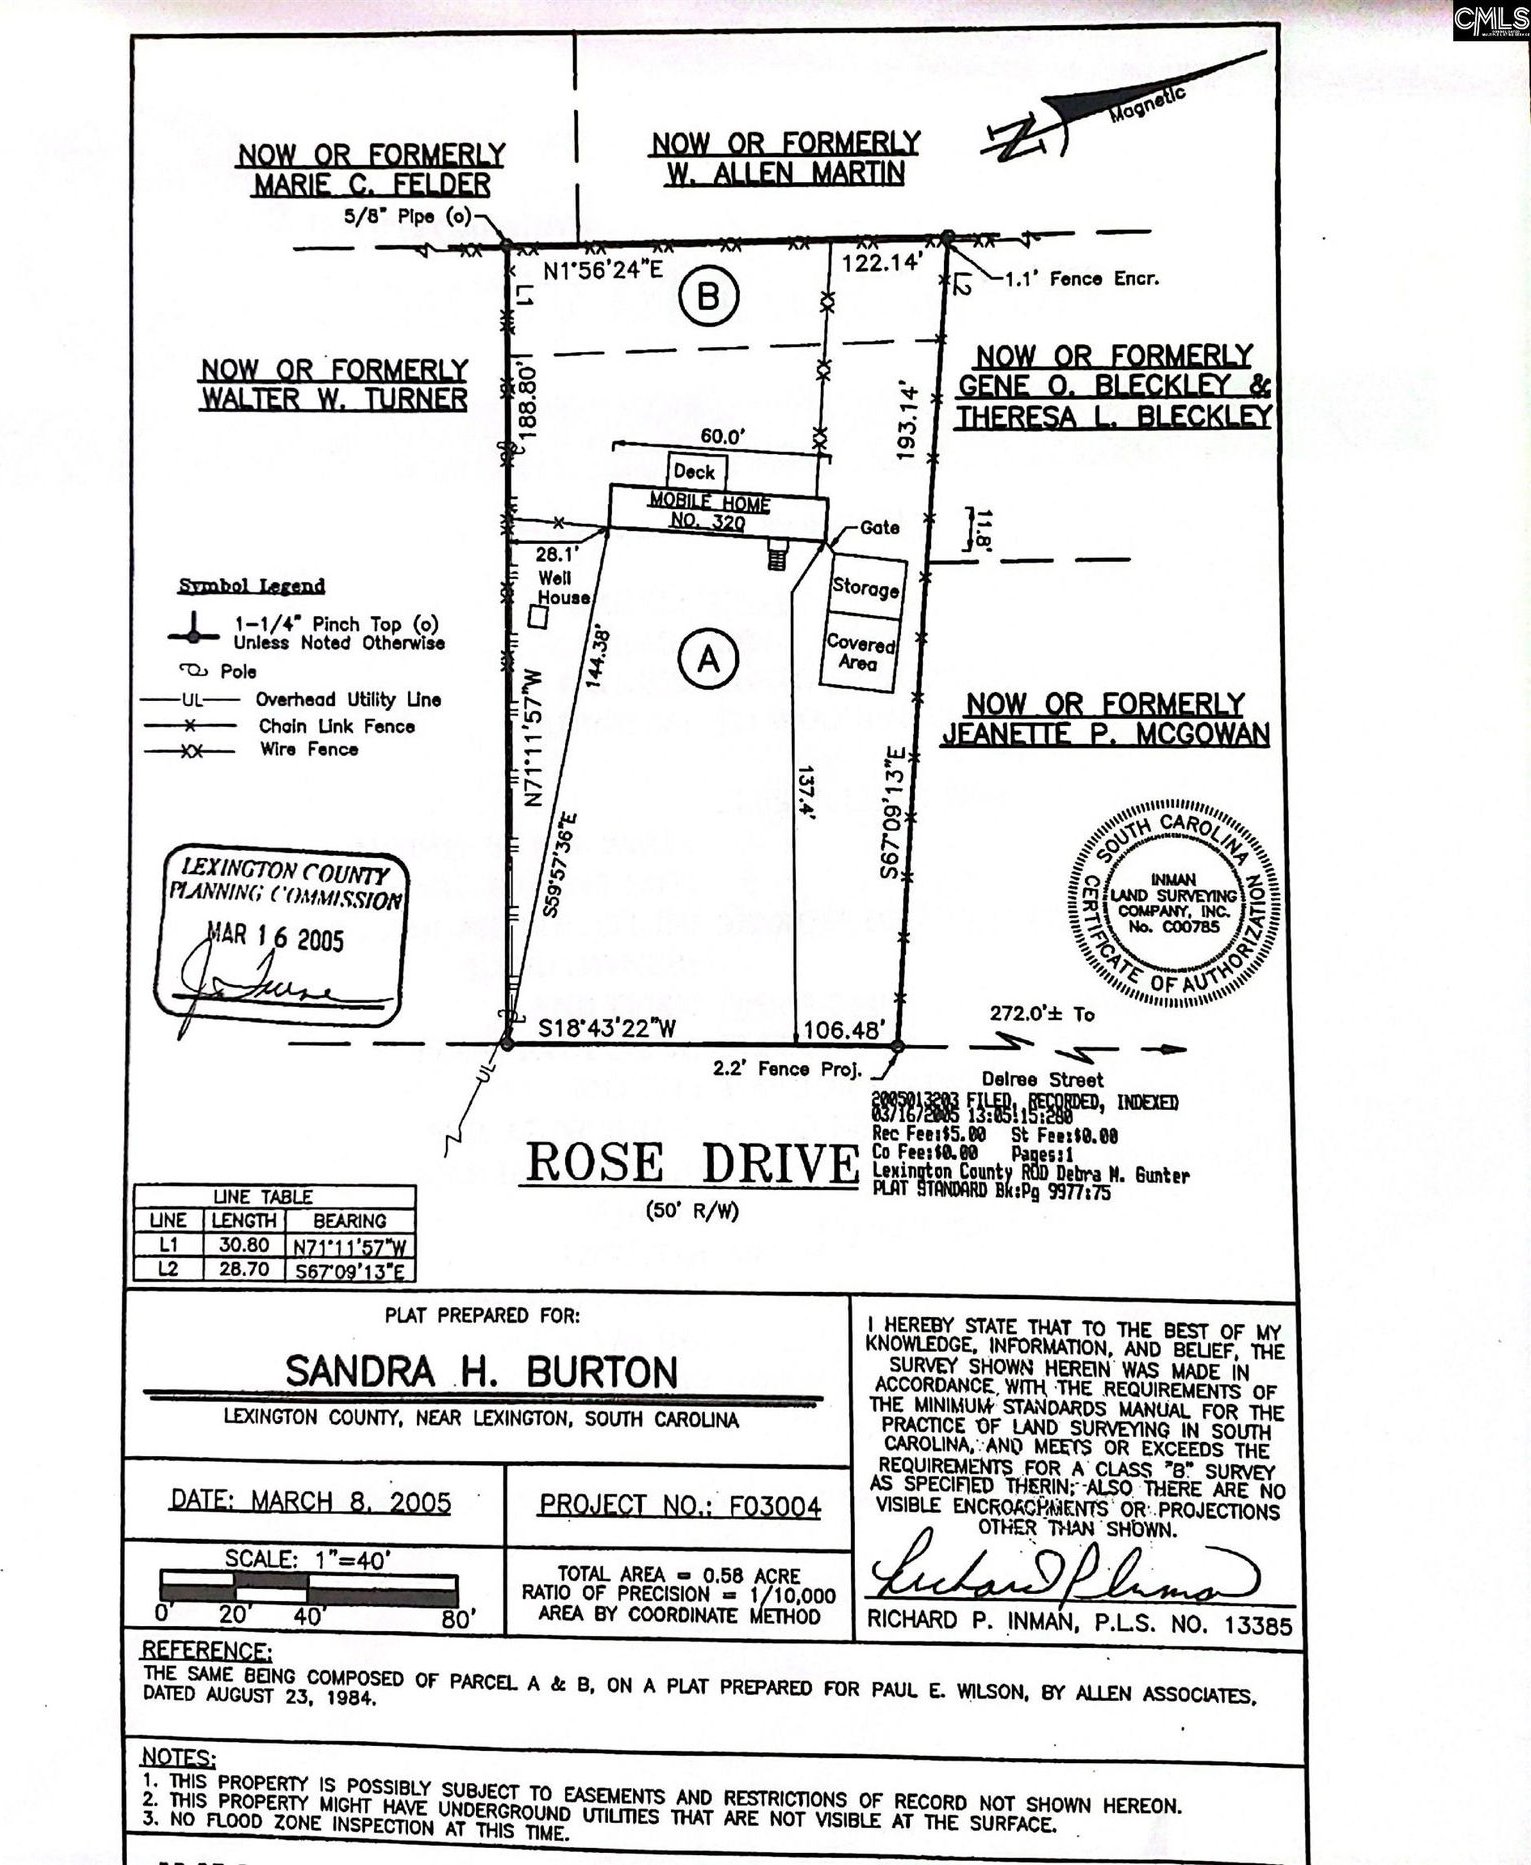 CMLS
Magnetic
N
NOW OR FORMERLY
MARIE C. FELDER
NOW OR FORMERLY
W. ALLEN MARTIN
5/8" Pipe (o)
N1°56'24"E
122.14'
1.1' Fence Encr.
L1
L2
B
NOW OR FORMERLY
WALTER W. TURNER
NOW OR FORMERLY
GENE O. BLECKLEY &
THERESA L. BLECKLEY
188.80'
193.14'
60.0'
Deck
MOBILE HOME
NO. 320
Gate
11.8'
28.1'
Well
House
Storage
Covered
Area
144.38'
A
Symbol Legend
1-1/4" Pinch Top (o)
Unless Noted Otherwise
Pole
UL Overhead Utility Line
X Chain Link Fence
XX Wire Fence
N71°11'57"W
S59°57'36"E
137.4'
S67°09'13"E
NOW OR FORMERLY
JEANETTE P. MCGOWAN
LEXINGTON COUNTY
PLANNING COMMISSION
MAR 16 2005
SOUTH CAROLINA
INMAN
LAND SURVEYING
COMPANY, INC.
No. C00785
CERTIFICATE OF AUTHORIZATION
S18°43'22"W
106.48'
272.0'± To
Delree Street
2.2' Fence Proj.
UL
2005013203 FILED, RECORDED, INDEXED
03/16/2005 13:05:15:280
Rec Fee:$5.00 St Fee:$0.00
Co Fee:$0.00 Pages:1
Lexington County ROD Debra M. Gunter
PLAT STANDARD Bk:Pg 9977:75
ROSE DRIVE
(50' R/W)
LINE TABLE
LINE LENGTH BEARING
L1 30.80 N71°11'57"W
L2 28.70 S67°09'13"E
PLAT PREPARED FOR:
SANDRA H. BURTON
LEXINGTON COUNTY, NEAR LEXINGTON, SOUTH CAROLINA
DATE: MARCH 8, 2005
PROJECT NO.: F03004
SCALE: 1"=40'
0' 20' 40' 80'
TOTAL AREA = 0.58 ACRE
RATIO OF PRECISION = 1/10,000
AREA BY COORDINATE METHOD
I HEREBY STATE THAT TO THE BEST OF MY
KNOWLEDGE, INFORMATION, AND BELIEF, THE
SURVEY SHOWN HEREIN WAS MADE IN
ACCORDANCE WITH THE REQUIREMENTS OF
THE MINIMUM STANDARDS MANUAL FOR THE
PRACTICE OF LAND SURVEYING IN SOUTH
CAROLINA, AND MEETS OR EXCEEDS THE
REQUIREMENTS FOR A CLASS "B" SURVEY
AS SPECIFIED THERIN; ALSO THERE ARE NO
VISIBLE ENCROACHMENTS OR PROJECTIONS
OTHER THAN SHOWN.
Richard P Inman
RICHARD P. INMAN, P.L.S. NO. 13385
REFERENCE:
THE SAME BEING COMPOSED OF PARCEL A & B, ON A PLAT PREPARED FOR PAUL E. WILSON, BY ALLEN ASSOCIATES,
DATED AUGUST 23, 1984.
NOTES:
1. THIS PROPERTY IS POSSIBLY SUBJECT TO EASEMENTS AND RESTRICTIONS OF RECORD NOT SHOWN HEREON.
2. THIS PROPERTY MIGHT HAVE UNDERGROUND UTILITIES THAT ARE NOT VISIBLE AT THE SURFACE.
3. NO FLOOD ZONE INSPECTION AT THIS TIME.